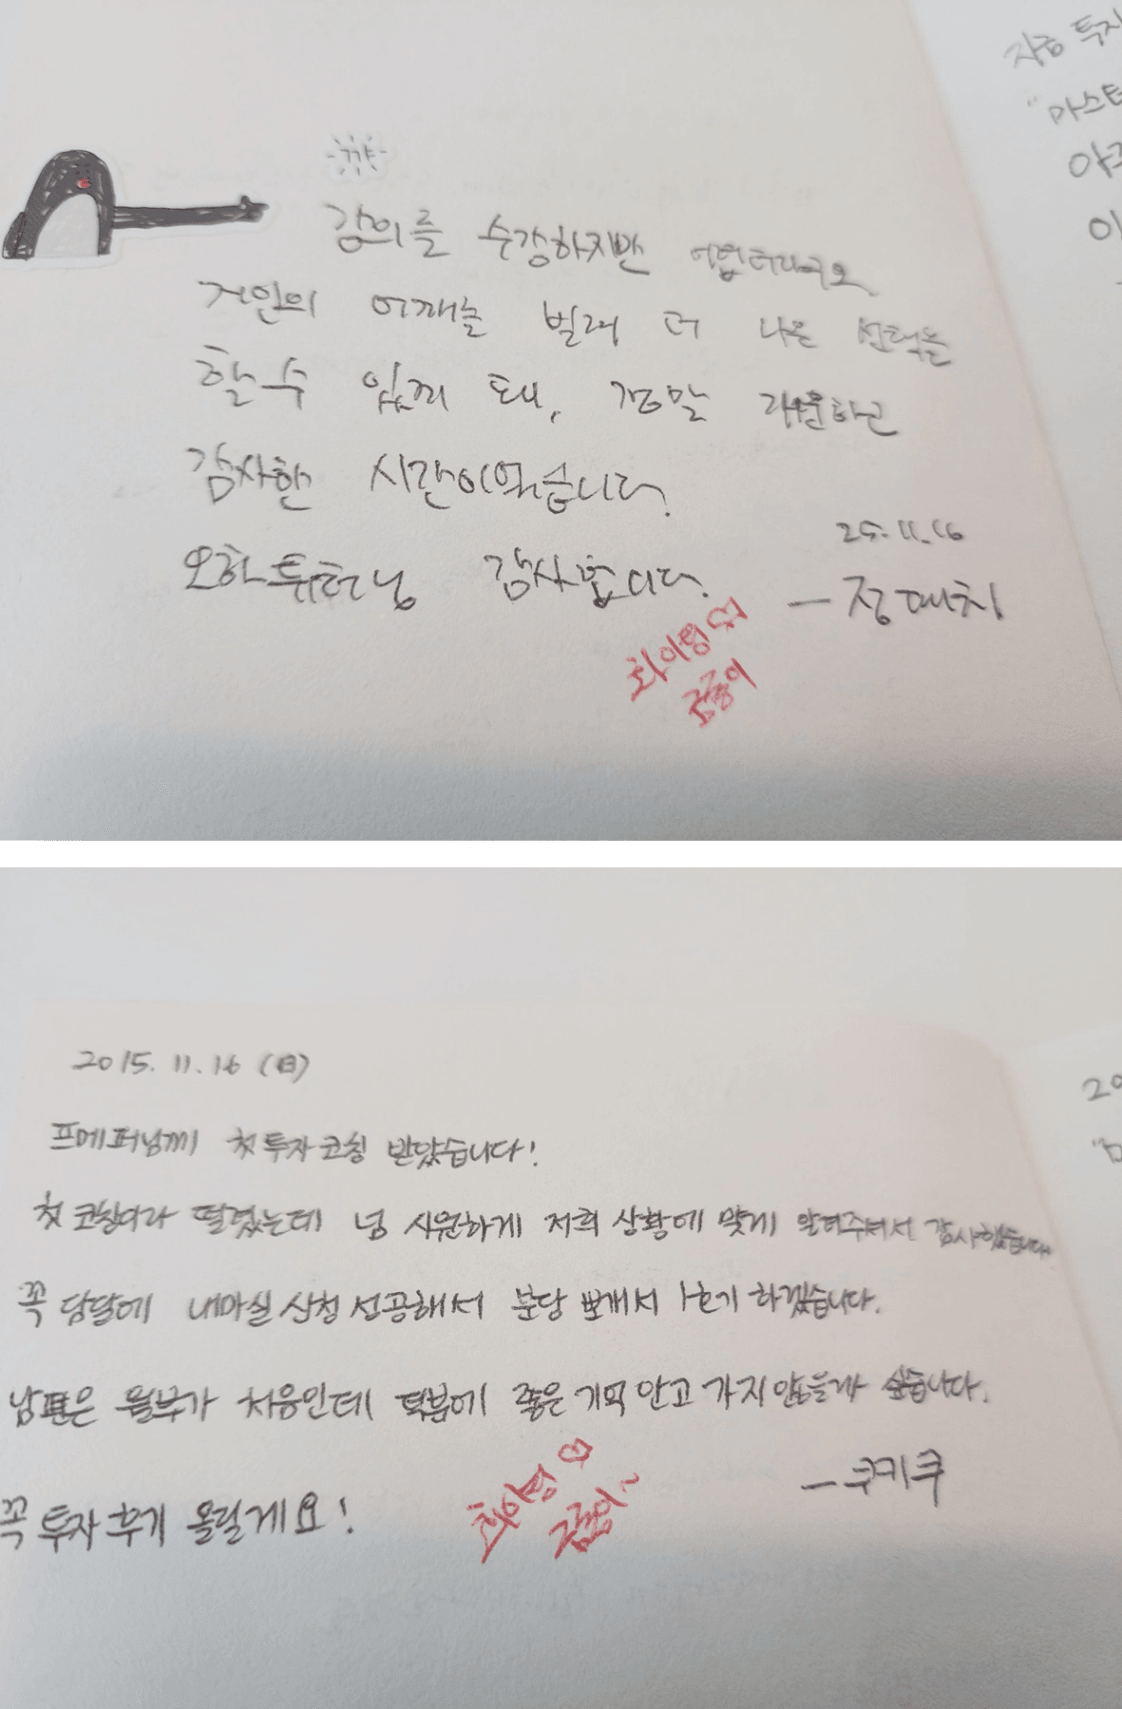 지금 투자
"마스터
꺅
강의를 수강하지만 어렵더라구요.
거인의 어깨를 빌려 더 나은 선택을
할 수 있게 돼, 정말 귀중하고
감사한 시간이였습니다.
오하튜터님 감사합니다.
25.11.16
— 정대치
화이팅♡
2015. 11. 16 (日)
프메퍼님께 첫 투자 코칭 받았습니다!
첫 코칭이라 떨렸는데 넘 시원하게 저희 상황에 맞게 알려주셔서 감사했습니다.
꼭 담달에 내마실 신청 성공해서 분당 뽀개서 1호기 하겠습니다.
남편은 월부가 처음인데 덕분에 좋은 기억 안고 가지 않을까 싶습니다.
— 쿠키쿠
꼭 투자 후기 올릴게요!
화이팅♡